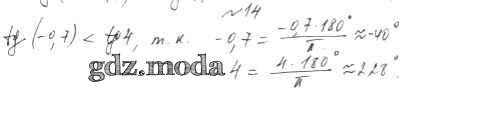 ~14
tg (-0,7) < tg 4, т.к. -0,7 = -0,7·180° / π ≈ -40°
gdz.moda 4 = 4·180° / π ≈ 228°.